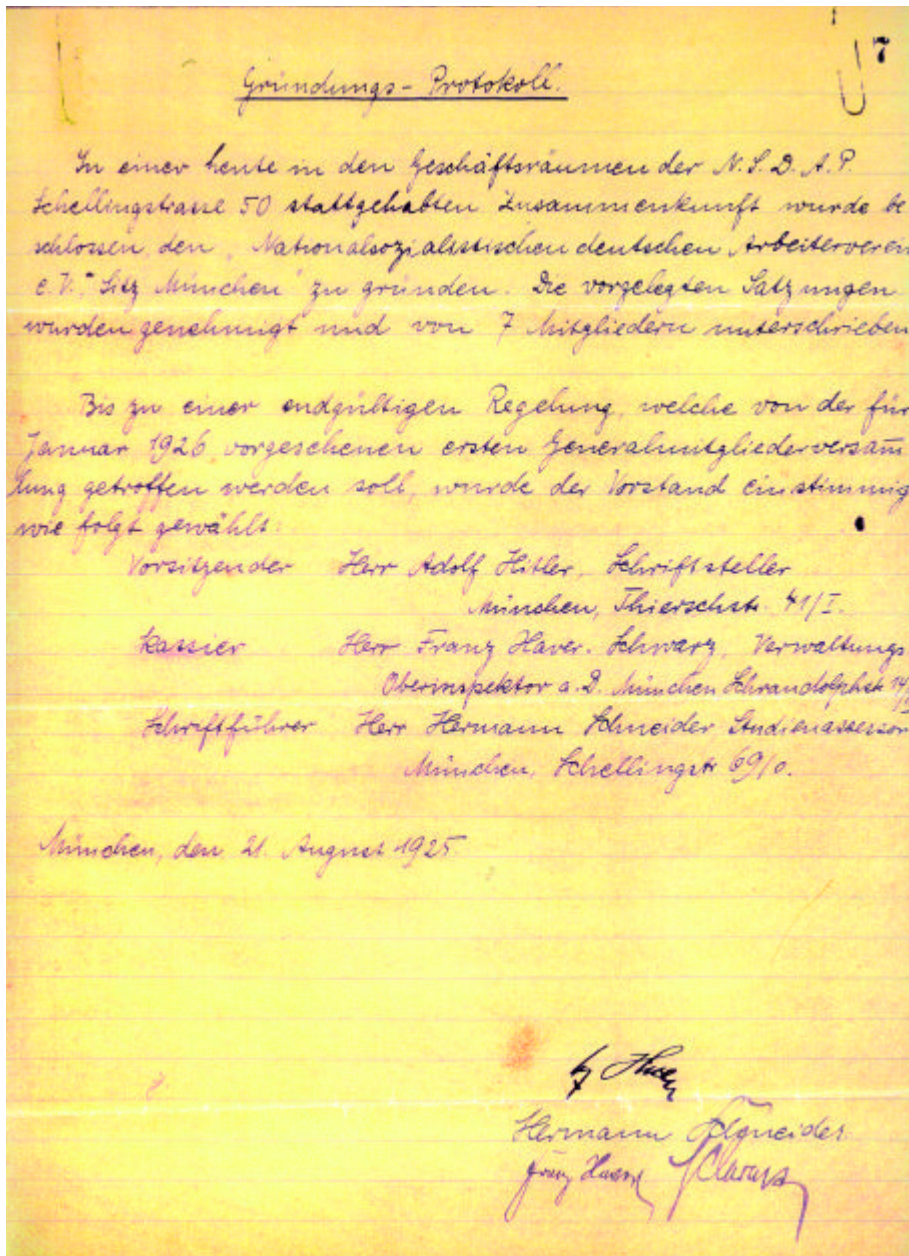 7
Gründungs-Protokoll.
In einer heute in den Geschäftsräumen der N.S.D.A.P.
Schellingstrasse 50 stattgehabten Zusammenkunft wurde be
schlossen, den „Nationalsozialistischen deutschen Arbeiterverein
e.V." Sitz München" zu gründen. Die vorgelegten Satzungen
wurden genehmigt und von 7 Mitgliedern unterschrieben
Bis zu einer endgültigen Regelung, welche von der für
Januar 1926 vorgesehenen ersten Generalmitgliederversam̄
lung getroffen werden soll, wurde der Vorstand einstimmig
wie folgt gewählt:
Vorsitzender Herr Adolf Hitler, Schriftsteller
München, Thierschstr. 41/I.
Kassier Herr Franz Xaver. Schwarz, Verwaltungs
Oberinspektor a.D. München Schraudolphstr 14/
Schriftführer Herr Hermann Schneider, Studienassessor
München, Schellingstr 69/0.
München, den 21. August 1925.
Hermann Schneider.
Franz Xaver Schwarz